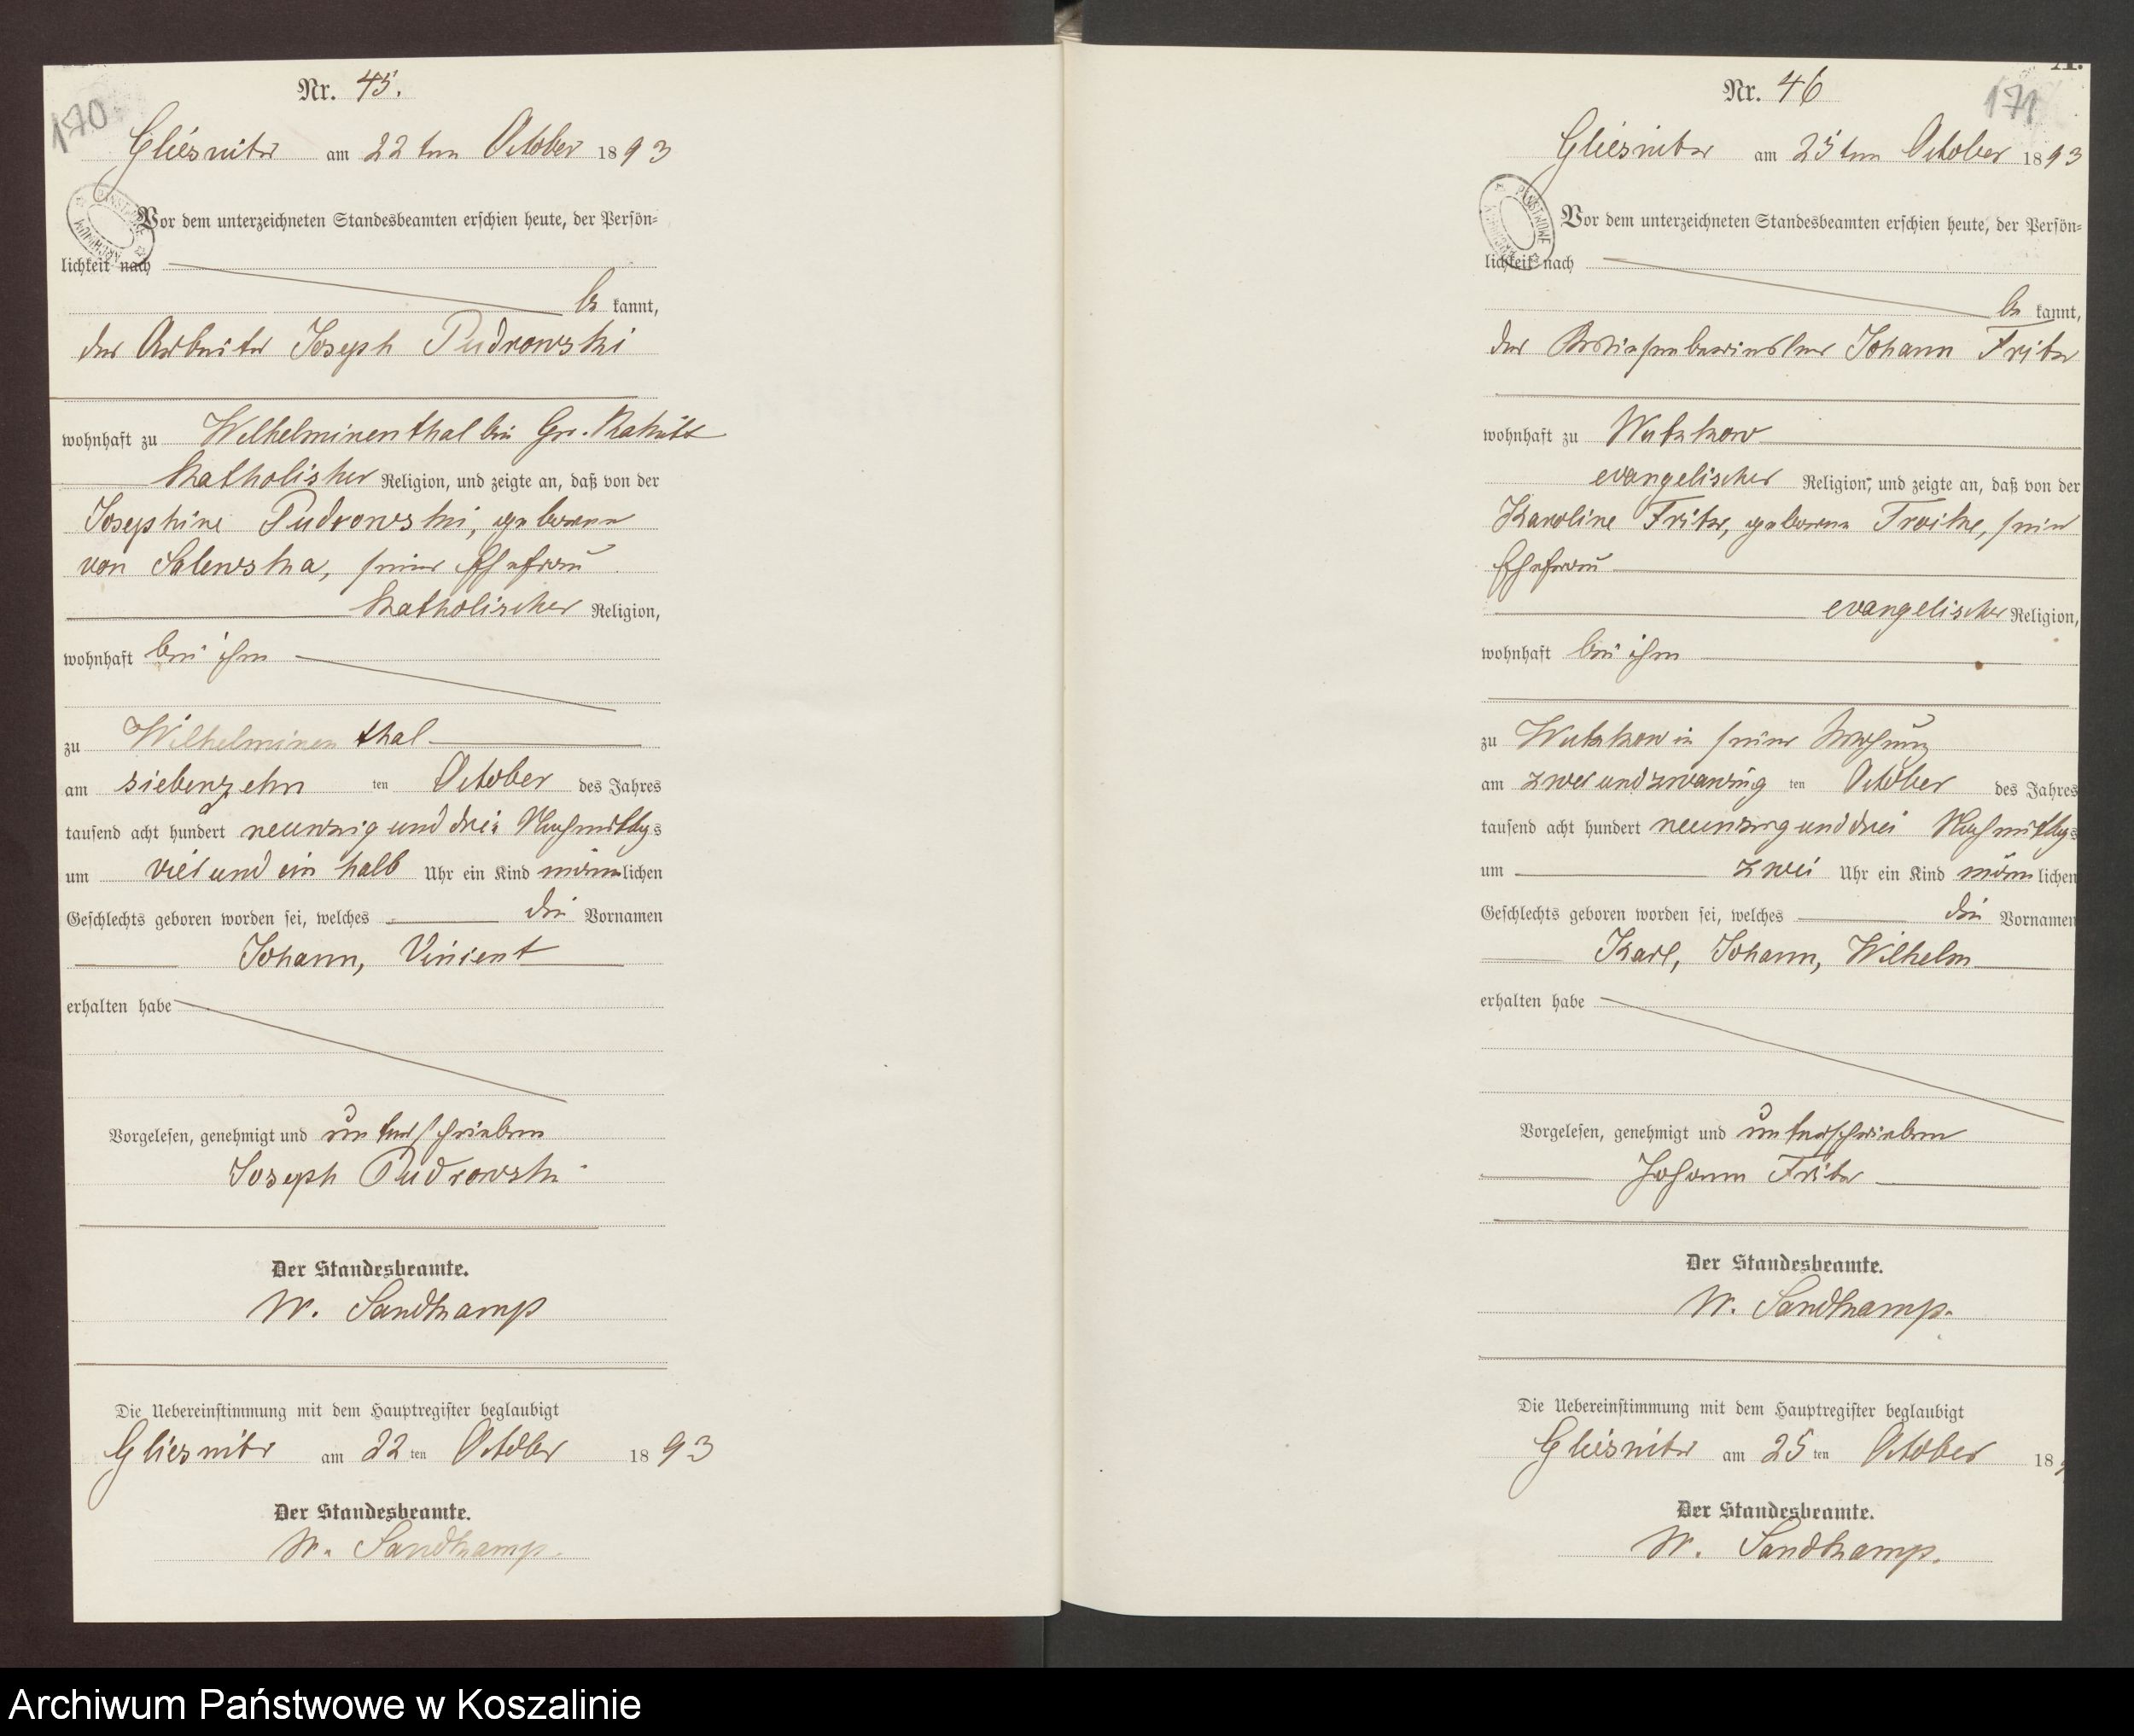 170
Nr. 45.
Gliesnitz am 22 ten October 1893
Vor dem unterzeichneten Standesbeamten erschien heute, der Persön-
lichkeit nach
be kannt,
der Arbeiter Joseph Pudrowski
wohnhaft zu Wilhelminenthal bei Gr.
katholischer Religion, und zeigte an, daß von der
Josephine Pudrowski, geborene
von Salewska, seiner Ehefrau
katholischer Religion,
wohnhaft bei ihm
zu Wilhelminenthal
am siebenzehn ten October des Jahres
tausend acht hundert neunzig und drei Nachmittags
um vier und ein halb Uhr ein Kind männlichen
Geschlechts geboren worden sei, welches die Vornamen
Johann, Vincent
erhalten habe
Vorgelesen, genehmigt und unterschrieben
Joseph Pudrowski
Der Standesbeamte.
W. Sandkamp
Die Uebereinstimmung mit dem Hauptregister beglaubigt
Gliesnitz am 22 ten October 1893
Der Standesbeamte.
W. Sandkamp.
171
Nr. 46
Gliesnitz am 25 ten October 1893
PAŃSTWOWE ARCHIWUM
Vor dem unterzeichneten Standesbeamten erschien heute, der Persön-
lichkeit nach
be kannt,
der Johann Fritz
wohnhaft zu Wutzkow
evangelischer Religion, und zeigte an, daß von der
Karoline Fritz, geborene Troike, seine
Ehefrau
evangelischer Religion,
wohnhaft bei ihm
zu Wutzkow in seiner Wohnung
am zwei und zwanzig ten October des Jahres
tausend acht hundert neunzig und drei Nachmittags
um zwei Uhr ein Kind männlichen
Geschlechts geboren worden sei, welches die Vornamen
Karl, Johann, Wilhelm
erhalten habe
Vorgelesen, genehmigt und unterschrieben
Johann Fritz
Der Standesbeamte.
W. Sandkamp.
Die Uebereinstimmung mit dem Hauptregister beglaubigt
Gliesnitz am 25 ten October 18
Der Standesbeamte.
W. Sandkamp.
Archiwum Państwowe w Koszalinie